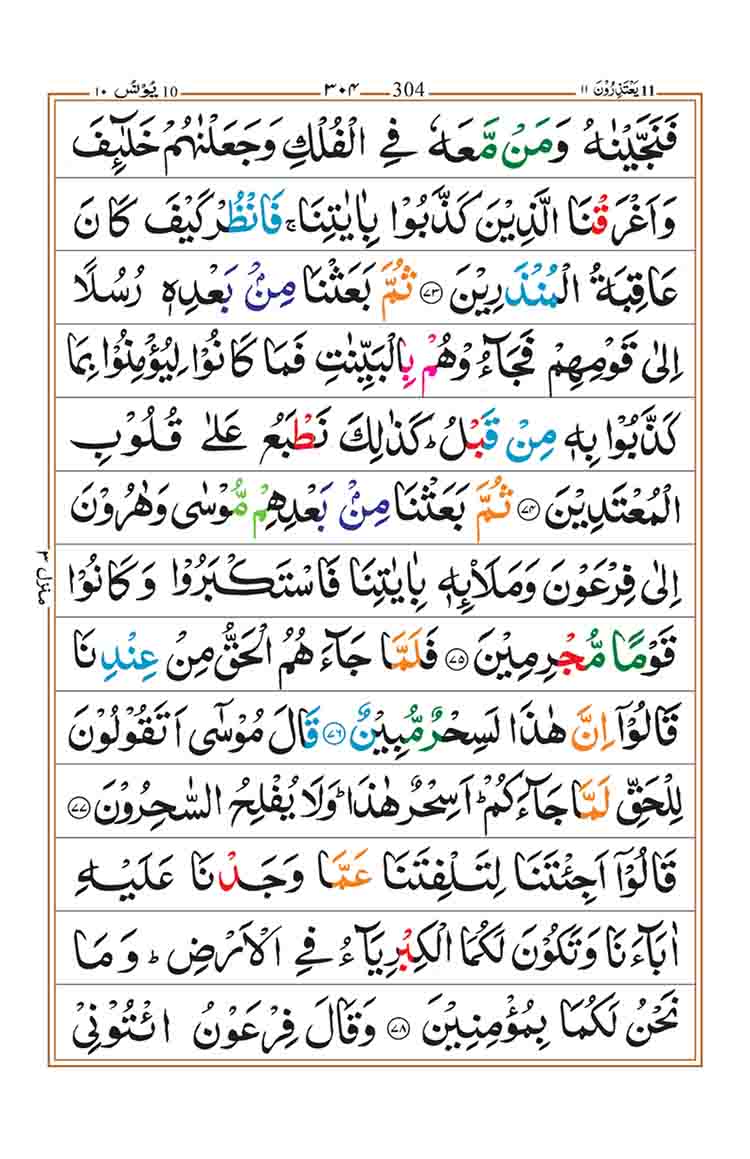 ١٠ يُوْنُس 10 ٣٠٤ 304 11 يَعْتَذِرُوْنَ ١١
فَنَجَّيْنٰهُ وَمَنْ مَّعَهٗ فِي الْفُلْكِ وَجَعَلْنٰهُمْ خَلٰٓئِفَ
وَاَغْرَقْنَا الَّذِيْنَ كَذَّبُوْا بِاٰيٰتِنَا ۚ فَانْظُرْ كَيْفَ كَانَ
عَاقِبَةُ الْمُنْذَرِيْنَ ﴿٧٣﴾ ثُمَّ بَعَثْنَا مِنْۢ بَعْدِهٖ رُسُلًا
اِلٰى قَوْمِهِمْ فَجَآءُوْهُمْ بِالْبَيِّنٰتِ فَمَا كَانُوْا لِيُؤْمِنُوْا بِمَا
كَذَّبُوْا بِهٖ مِنْ قَبْلُ ؕ كَذٰلِكَ نَطْبَعُ عَلٰى قُلُوْبِ
الْمُعْتَدِيْنَ ﴿٧٤﴾ ثُمَّ بَعَثْنَا مِنْۢ بَعْدِهِمْ مُّوْسٰى وَهٰرُوْنَ
اِلٰى فِرْعَوْنَ وَمَلَا۟ئِهٖ بِاٰيٰتِنَا فَاسْتَكْبَرُوْا وَكَانُوْا
قَوْمًا مُّجْرِمِيْنَ ﴿٧٥﴾ فَلَمَّا جَآءَهُمُ الْحَقُّ مِنْ عِنْدِنَا
قَالُوْۤا اِنَّ هٰذَا لَسِحْرٌ مُّبِيْنٌ ﴿٧٦﴾ قَالَ مُوْسٰٓى اَتَقُوْلُوْنَ
لِلْحَقِّ لَمَّا جَآءَكُمْ ؕ اَسِحْرٌ هٰذَا ؕ وَلَا يُفْلِحُ السّٰحِرُوْنَ ﴿٧٧﴾
قَالُوْۤا اَجِئْتَنَا لِتَلْفِتَنَا عَمَّا وَجَدْنَا عَلَيْهِ
اٰبَآءَنَا وَتَكُوْنَ لَكُمَا الْكِبْرِيَآءُ فِي الْاَرْضِ ؕ وَمَا
نَحْنُ لَكُمَا بِمُؤْمِنِيْنَ ﴿٧٨﴾ وَقَالَ فِرْعَوْنُ ائْتُوْنِيْ
منزل ٣